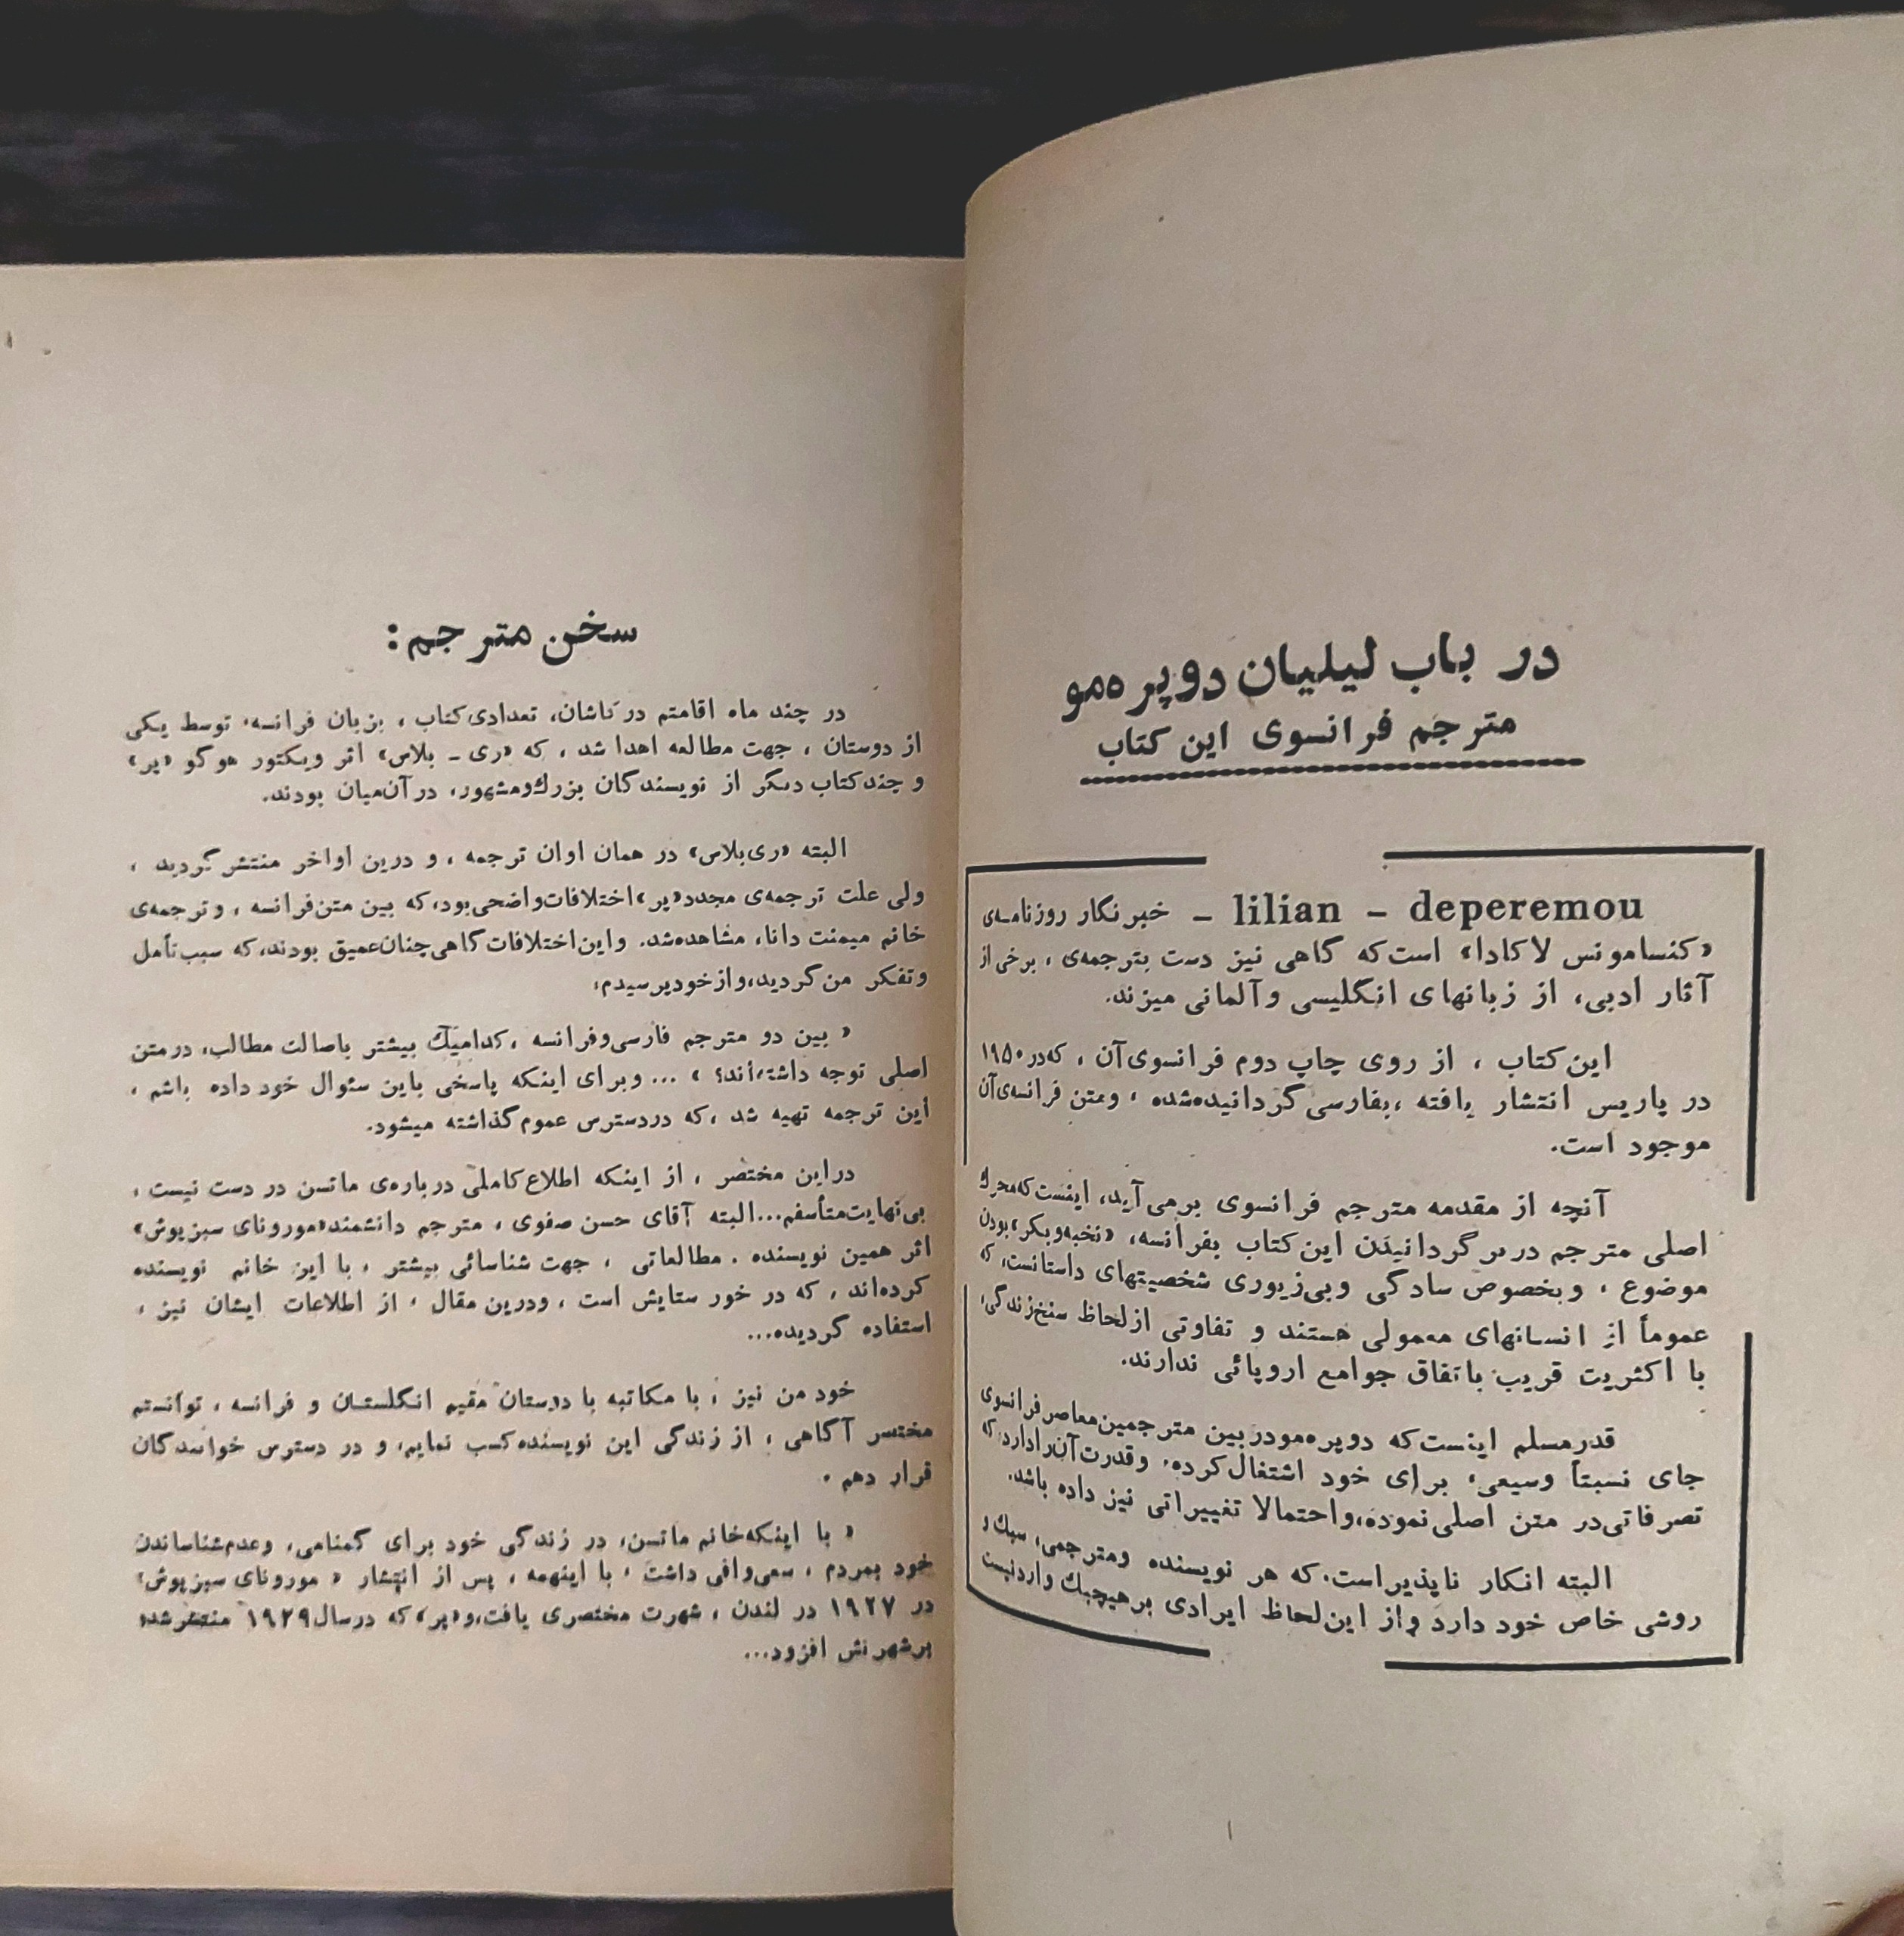 در باب لیلیان دوپره‌مو
مترجم فرانسوی این کتاب
lilian – deperemou – خبرنگار روزنامه‌ی
«کنسامونس لاکادا» است‌که گاهی نیز دست بترجمه‌ی ، برخی از
آثار ادبی، از زبانهای انگلیسی وآلمانی میزند.
این‌کتاب ، از روی چاپ دوم فرانسوی‌آن ، که‌در ۱۹۵۰
در پاریس انتشار یافته ،بفارسی‌گردانیده‌شده ، ومتن فرانسه‌ی‌آن
موجود است.
آنچه از مقدمه مترجم فرانسوی برمی‌آید، اینست‌که‌محرك
اصلی مترجم در برگردانیدن این‌کتاب بفرانسه، «نخبه‌وبکر»بودن
موضوع ، وبخصوص سادگی وبی‌زیوری شخصیتهای داستانست، که
عموماً از انسانهای معمولی هستند و تفاوتی ازلحاظ سنخ‌زندگی،
با اکثریت قریب باتفاق جوامع اروپائی ندارند.
قدرمسلم اینست‌که دوپره‌مودربین مترجمین‌معاصرفرانسوی
جای نسبتاً وسیعی، برای خود اشتغال‌کرده، وقدرت‌آن‌رادارد،که
تصرفاتی‌در متن اصلی‌نموده،واحتمالا تغییراتی نیز داده باشد.
البته انکار ناپذیراست،که هر نویسنده ومترجمی، سبك و
روشی خاص خود دارد واز این‌لحاظ ایرادی برهیچیك واردنیست
سخن مترجم:
در چند ماه اقامتم در کاشان، تعدادی‌کتاب ، بزبان فرانسه، توسط یکی
از دوستان ، جهت مطالعه اهدا شد ، که «ری ـ بلاس» اثر ویکتور هوگو «پر»
و چندکتاب دیگر از نویسندگان بزرك‌ومشهور، درآن‌میان بودند.
البته «ری‌بلاس» در همان اوان ترجمه ، و درین اواخر منتشرگردید ،
ولی علت ترجمه‌ی مجدد«پر»اختلافات‌واضحی‌بود،که بین متن‌فرانسه ، وترجمه‌ی
خانم میمنت دانا، مشاهده‌شد. واین‌اختلافات‌گاهی‌چنان‌عمیق بودند،که سبب‌تأمل
وتفکر من‌گردید،وازخودپرسیدم:
« بین دو مترجم فارسی‌وفرانسه ،کدامیك بیشتر باصالت مطالب، درمتن
اصلی توجه داشته‌اند؟ » ... وبرای اینکه پاسخی باین سئوال خود داده باشم ،
این ترجمه تهیه شد ،که دردسترس عموم‌گذاشته میشود.
دراین مختصر ، از اینکه اطلاع‌کاملی درباره‌ی ماتسن در دست نیست ،
بی‌نهایت‌متأسفم...البته آقای حسن صفوی ، مترجم دانشمند«مورونای سبزپوش»
اثر همین نویسنده . مطالعاتی ، جهت شناسائی بیشتر ، با این خانم نویسنده
کرده‌اند ، که در خور ستایش است ، ودرین مقال ، از اطلاعات ایشان نیز ،
استفاده گردیده...
خود من نیز ، با مکاتبه با دوستان مقیم انگلستان و فرانسه ، توانستم
مختسر آگاهی ، از زندگی این نویسنده‌کسب نمایم، و در دسترس خوانندگان
قرار دهم .
« با اینکه‌خانم ماتسن، در زندگی خود برای گمنامی، وعدم‌شناساندن
خود بمردم ، سعی‌وافی داشت ، با اینهمه ، پس از انتشار « مورونای سبزپوش»
در ۱۹۲۷ در لندن ، شهرت مختصری یافت،و«پر»که درسال۱۹۲۹ منتشرشد،
برشهرتش افزود...